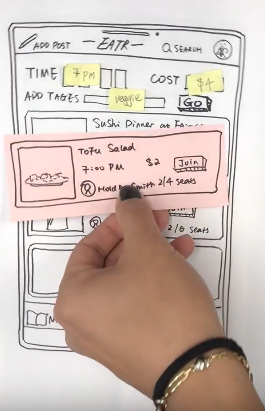 ADD POST EATR SEARCH
TIME 7pm COST $4
ADD TAGES veggie GO
Sushi Dinner at
Tofu Salad
7:00 PM $2 Join
Smith 2/4 seats
seats